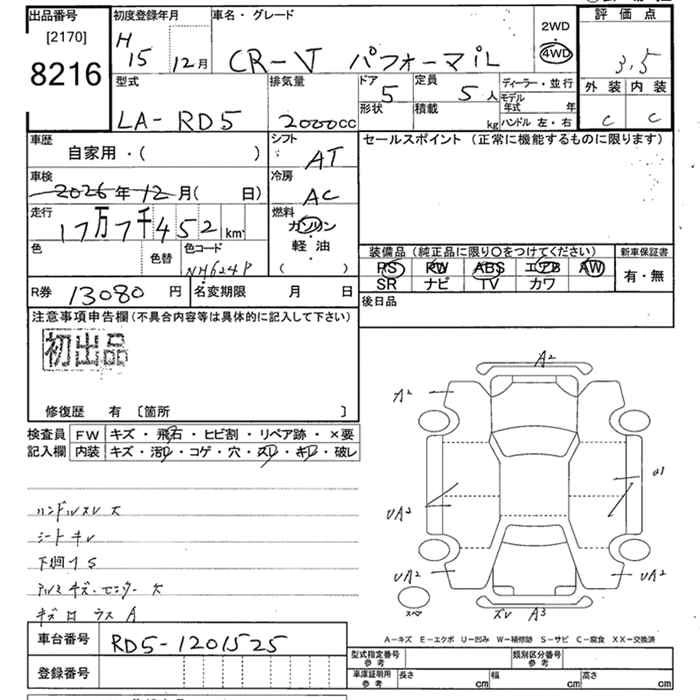 出品番号
[2170]
8216
初度登録年月
H 15 12月
車名・グレード
CR-V パフォーマiL
2WD
・
4WD
評価点
3.5
外装 内装
C C
型式
LA-RD5
排気量
2000cc
ドア
5
形状
定員
5人
積載
kg
ディーラー・並行
モデル年式 年
ハンドル 左・右
車歴
自家用・( )
シフト
AT
セールスポイント (正常に機能するものに限ります)
車検
2026年12月( 日)
冷房
AC
走行
17万7千452km
燃料
ガソリン
・
軽油
( )
色
色替
色コード
NH624P
装備品(純正品に限り○をつけてください)
PS PW ABS エアB AW
SR ナビ TV カワ
新車保証書
有・無
R券 13080円
名変期限 月 日
後日品
注意事項申告欄(不具合内容等は具体的に記入して下さい)
初出品
修復歴 有 〔箇所 〕
検査員記入欄
FW キズ・飛石・ヒビ割・リペア跡・×要
内装 キズ・汚レ・コゲ・穴・スレ・キレ・破レ
ハンドルスレ大
シートキレ
アルミキズ・センター
A2
A2
UA2
UA2
UA2
スペ
ズレ A3
A-キズ E-エクボ U-凹み W-補修跡 S-サビ C-腐食 XX-交換済
車台番号 RD5-1201525
登録番号
型式指定番号
参考
類別区分番号
参考
車庫証明用
参考
長さ cm 幅 cm 高さ cm